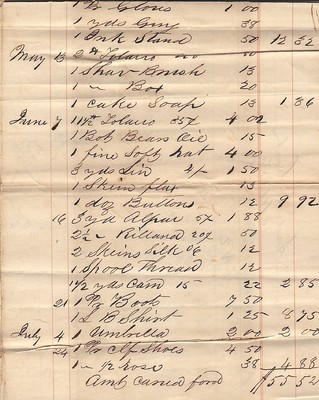 1 Pr Gloves 1 00
1 yds Guy 38
1 Ink Stand 50 12 32
May 13 2 lb Tobacco
1 Shav Brush 13
1 " Box 20
1 cake Soap 13 1 86
June 7 11½ Tobacco 35¢ 4 02
1 Bob Bears Oil 15
1 fine Soft hat 4 00
3 yds Lin 4/- 1 50
1 Skein flax 13
1 doz Buttons 12 9 92
16 3 yd Alpac 1 88
2½ " 20¢ 50
2 Skeins Silk 06 12
1 Spool Thread 12
1½ yds Cam 15 22 2 85
21 1 Pr Boots 7 50
1 L B Shirt 1 25 8 75
July 4 1 Umbrella 2 00 2 00
24 1 Pr Clf Shoes 4 50
1 " ½ hose 38 4 88
Amt carried ford 155 52